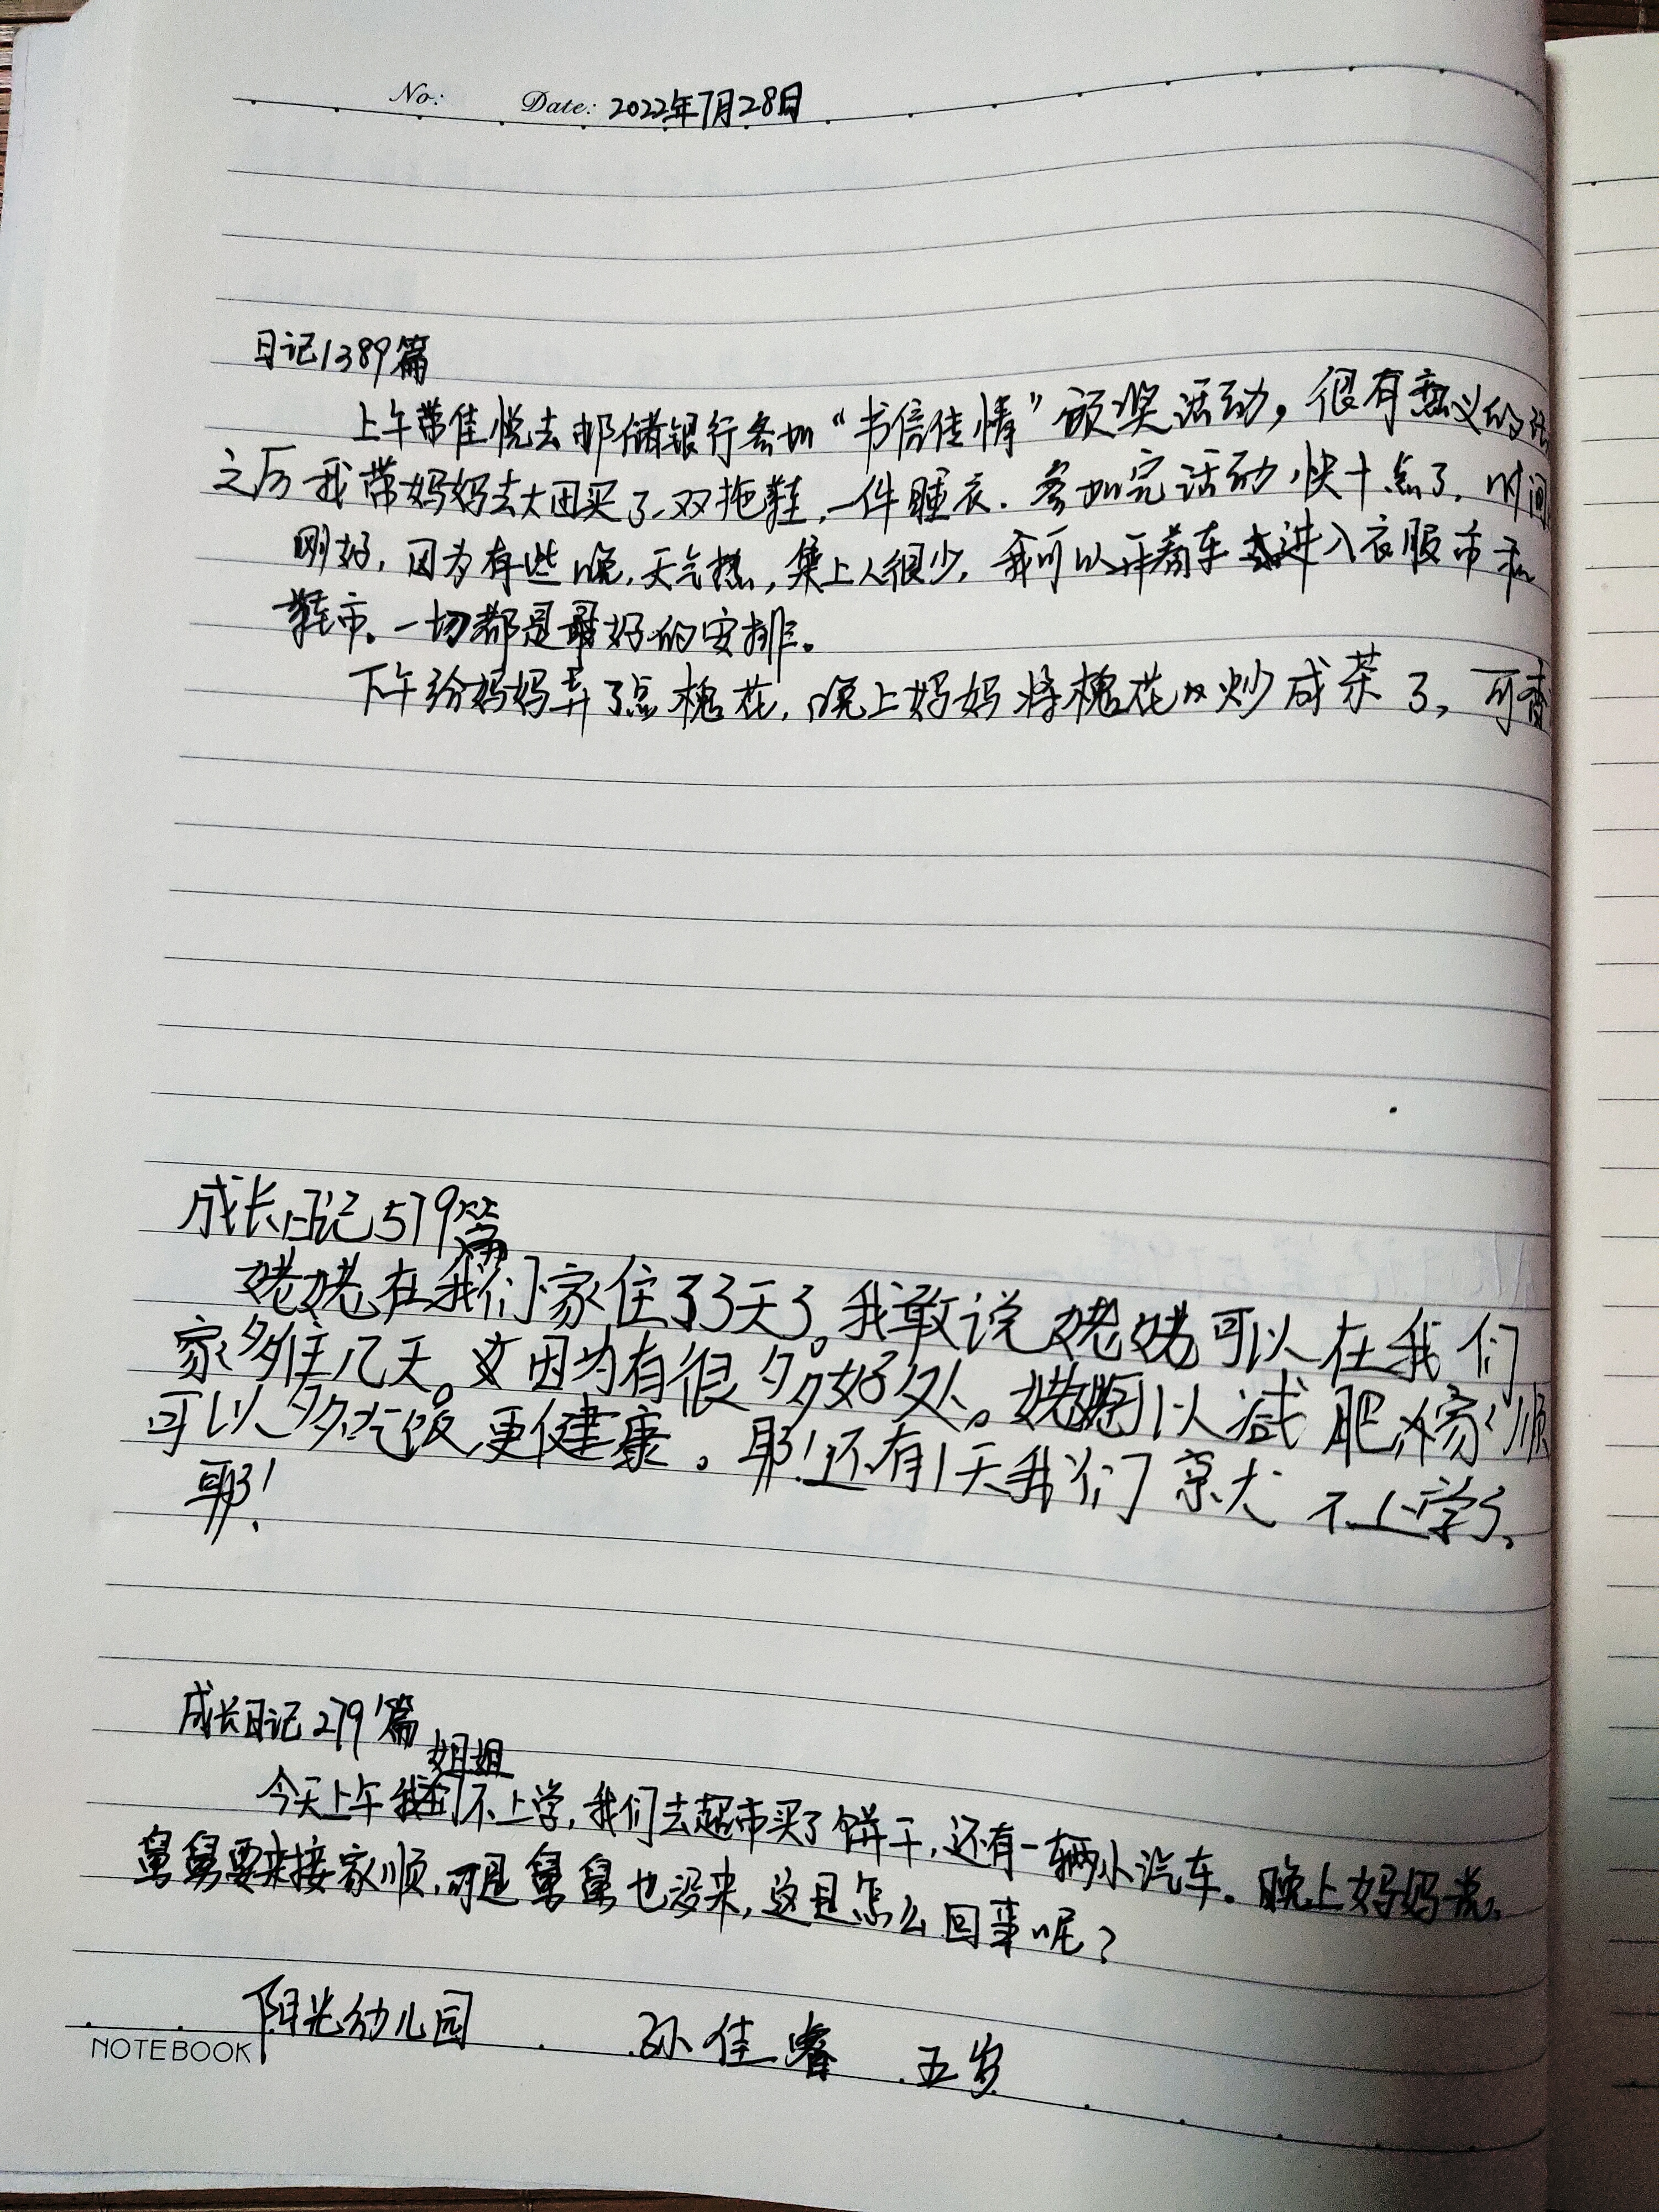 No: Date: 2022年7月28日
日记1389篇
上午带佳悦去邮储银行参加“书信传情”颁奖活动，很有意义的活
之后我带妈妈去大田买了双拖鞋，一件睡衣．参加完活动快十点了．时间
刚好，因为有些晚，天气热，集上人很少，我可以开着车进入衣服市和
鞋市。一切都是最好的安排。
下午给妈妈弄了点槐花，晚上妈妈将槐花炒成茶了，可香
成长日记579篇
姥姥在我们家住了3天了。我敢说姥姥可以在我们
家多住几天。因为有很多好处。姥姥可以减肥，家顺
可以多吃饭更健康。耶！还有1天我们 不上学了。
耶！
成长日记279篇
姐姐
今天上午我们不上学，我们去超市买了饼干，还有一辆小汽车。晚上妈妈说，
舅舅要来接家顺，可是舅舅也没来，这是怎么回事呢？
阳光幼儿园 孙佳睿 五岁
NOTEBOOK